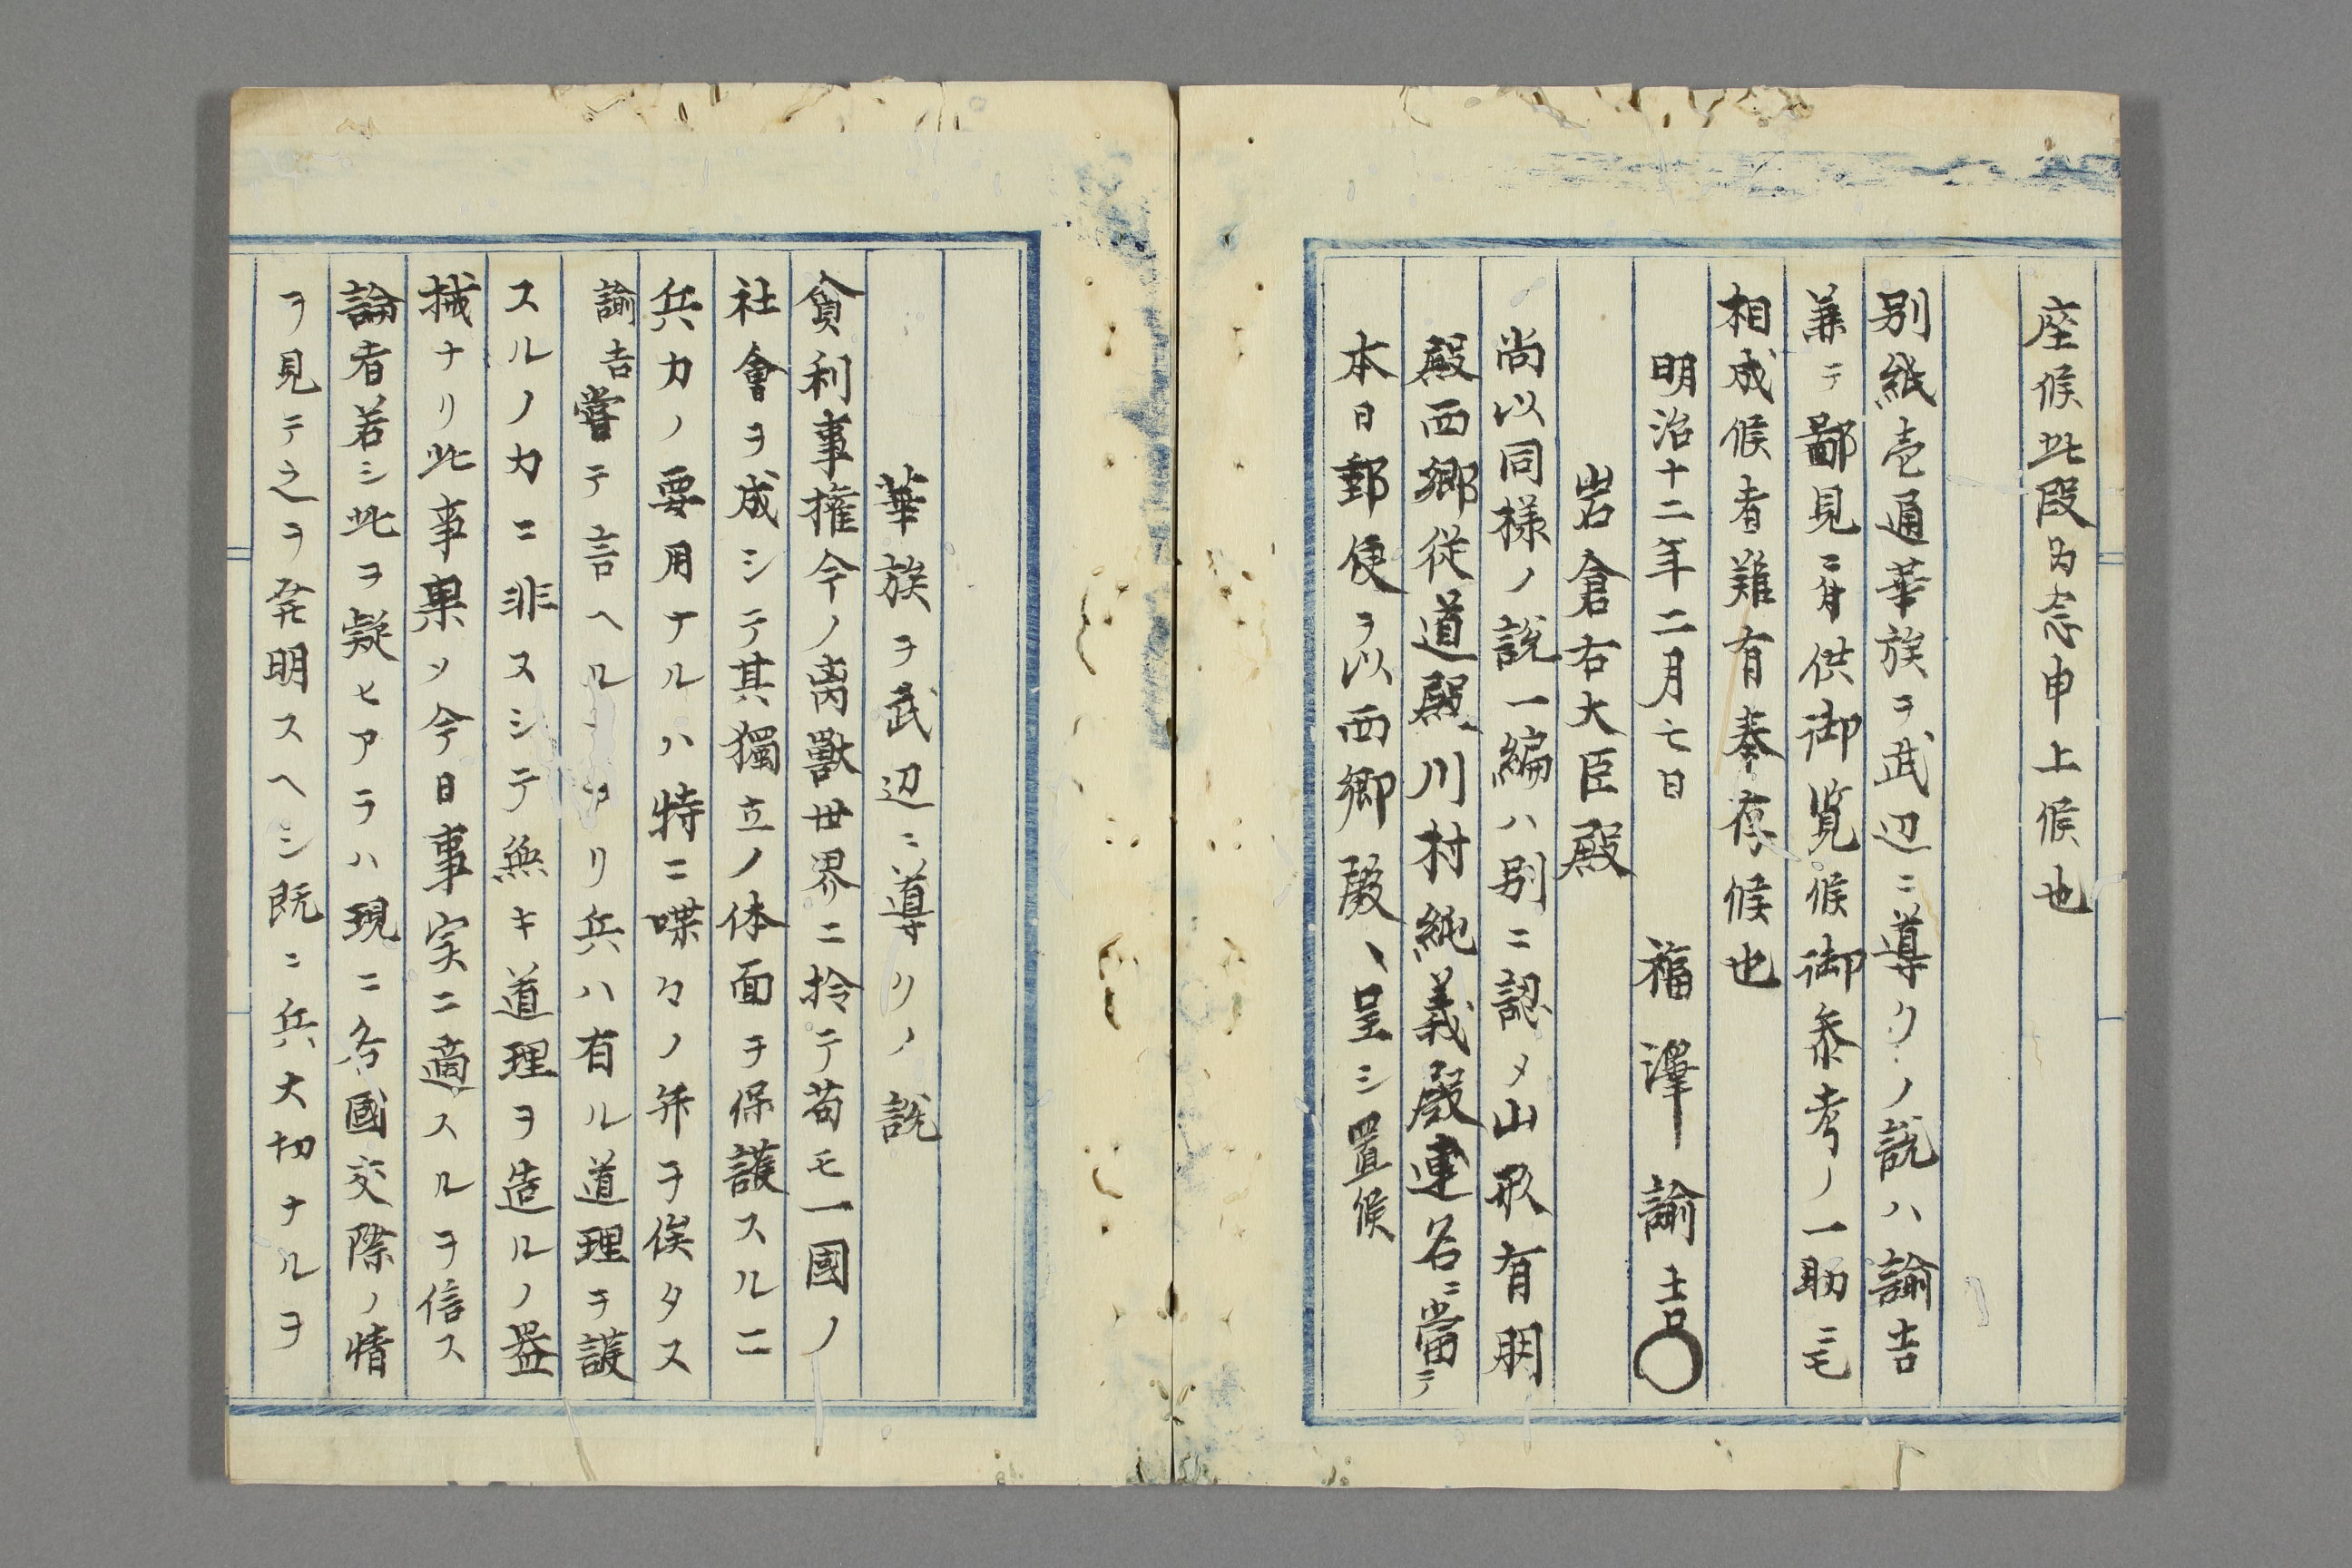 座候此段為念申上候也
別紙壱通華族ヲ武辺ニ導クノ説ハ諭吉
兼テ鄙見ニ付供御覧候御参考ノ一助ニモ
相成候者難有奉存候也
明治十二年二月七日　福澤諭吉〇
岩倉右大臣殿
尚以同様ノ説一編ハ別ニ認メ山形有朋
殿西郷従道殿川村純義殿連名ニ當テ
本日郵便ヲ以西郷殿ヘ呈シ置候
華族ヲ武辺ニ導クノ説
貪利事権今ノ禽獣世界ニ於テ苟モ一國ノ
社會ヲ成シテ其獨立ノ体面ヲ保護スルニ
兵力ノ要用ナルハ特ニ喋々ノ弁ヲ俟タス
諭吉嘗テ言ヘルアリ兵ハ有ル道理ヲ護
スルノ力ニ非スシテ無キ道理ヲ造ルノ器
械ナリ此事果ソ今日事実ニ適スルヲ信ス
論者若シ此ヲ疑ヒアラハ現ニ各國交際ノ情
ヲ見テ之ヲ発明スヘシ既ニ兵大切ナルヲ